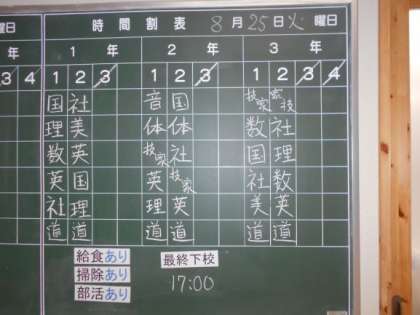 曜日 時間割表 8月25日火曜日
年 1年 2年 3年
3 4 1 2 3 1 2 3 1 2 3 4
国 社 音 国 技家 家技
理 美 体 体 数 社
数 英 技家 社 国 理
英 国 英 技家 社 数
社 理 理 英 美 英
道 道 道 道 道 道
給食あり 最終下校
掃除あり 17:00
部活あり